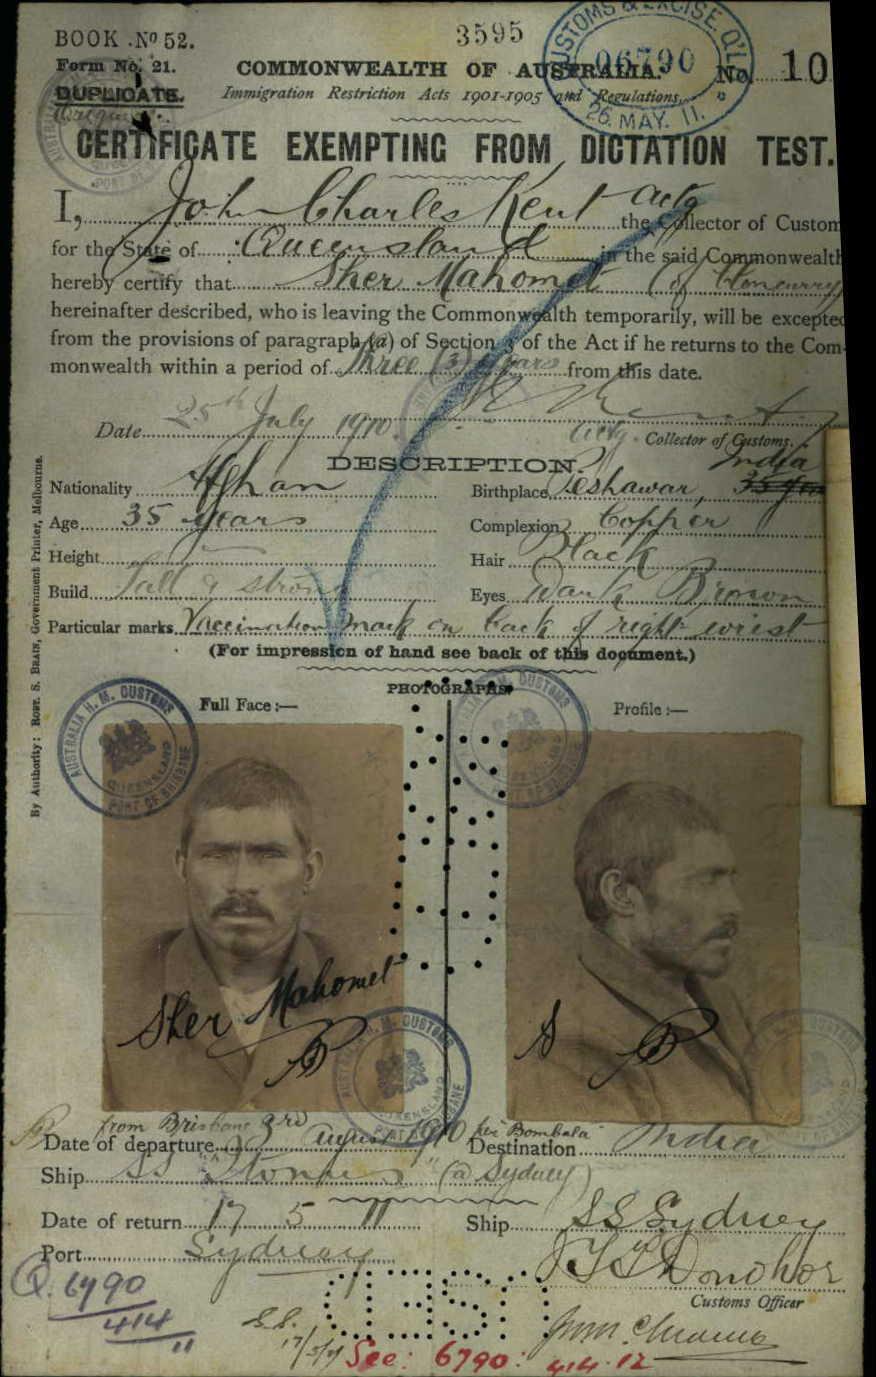 BOOK Nº 52.
3595
CUSTOMS & EXCISE. Q'L
06790
26. MAY. 11.
Form No. 21.
COMMONWEALTH OF AUSTRALIA.
No. 10
DUPLICATE.
Immigration Restriction Acts 1901-1905 and Regulations.
CERTIFICATE EXEMPTING FROM DICTATION TEST.
I, John Charles Kent actg the Collector of Custom
for the State of Queensland in the said Commonwealth
hereby certify that Sher Mahomet (of Cloncurry
hereinafter described, who is leaving the Commonwealth temporarily, will be excepted
from the provisions of paragraph (a) of Section 3 of the Act if he returns to the Com-
monwealth within a period of Three (3) years from this date.
Date 25th July 1910.
Actg. Collector of Customs.
DESCRIPTION.
Nationality Afghan
Birthplace Peshawar, India
Age 35 years
Complexion Copper
Height
Hair Black
Build Tall & strong
Eyes Dark Brown
Particular marks Vaccination mark on back of right wrist
(For impression of hand see back of this document.)
PHOTOGRAPHS.
Full Face :—
Profile :—
AUSTRALIA H. M. CUSTOMS
QUEENSLAND
PORT OF BRISBANE
Sher Mahomet
By Authority: ROBT. S. BRAIN, Government Printer, Melbourne.
from Brisbane 3rd
per "Bombala"
Date of departure August 1910
Destination India
Ship SS (a Sydney)
Date of return 17 5 11
Ship SS Sydney
Port Sydney
Q. 6790
414
11
Customs Officer
17/5/11
See: 6790: 414.12